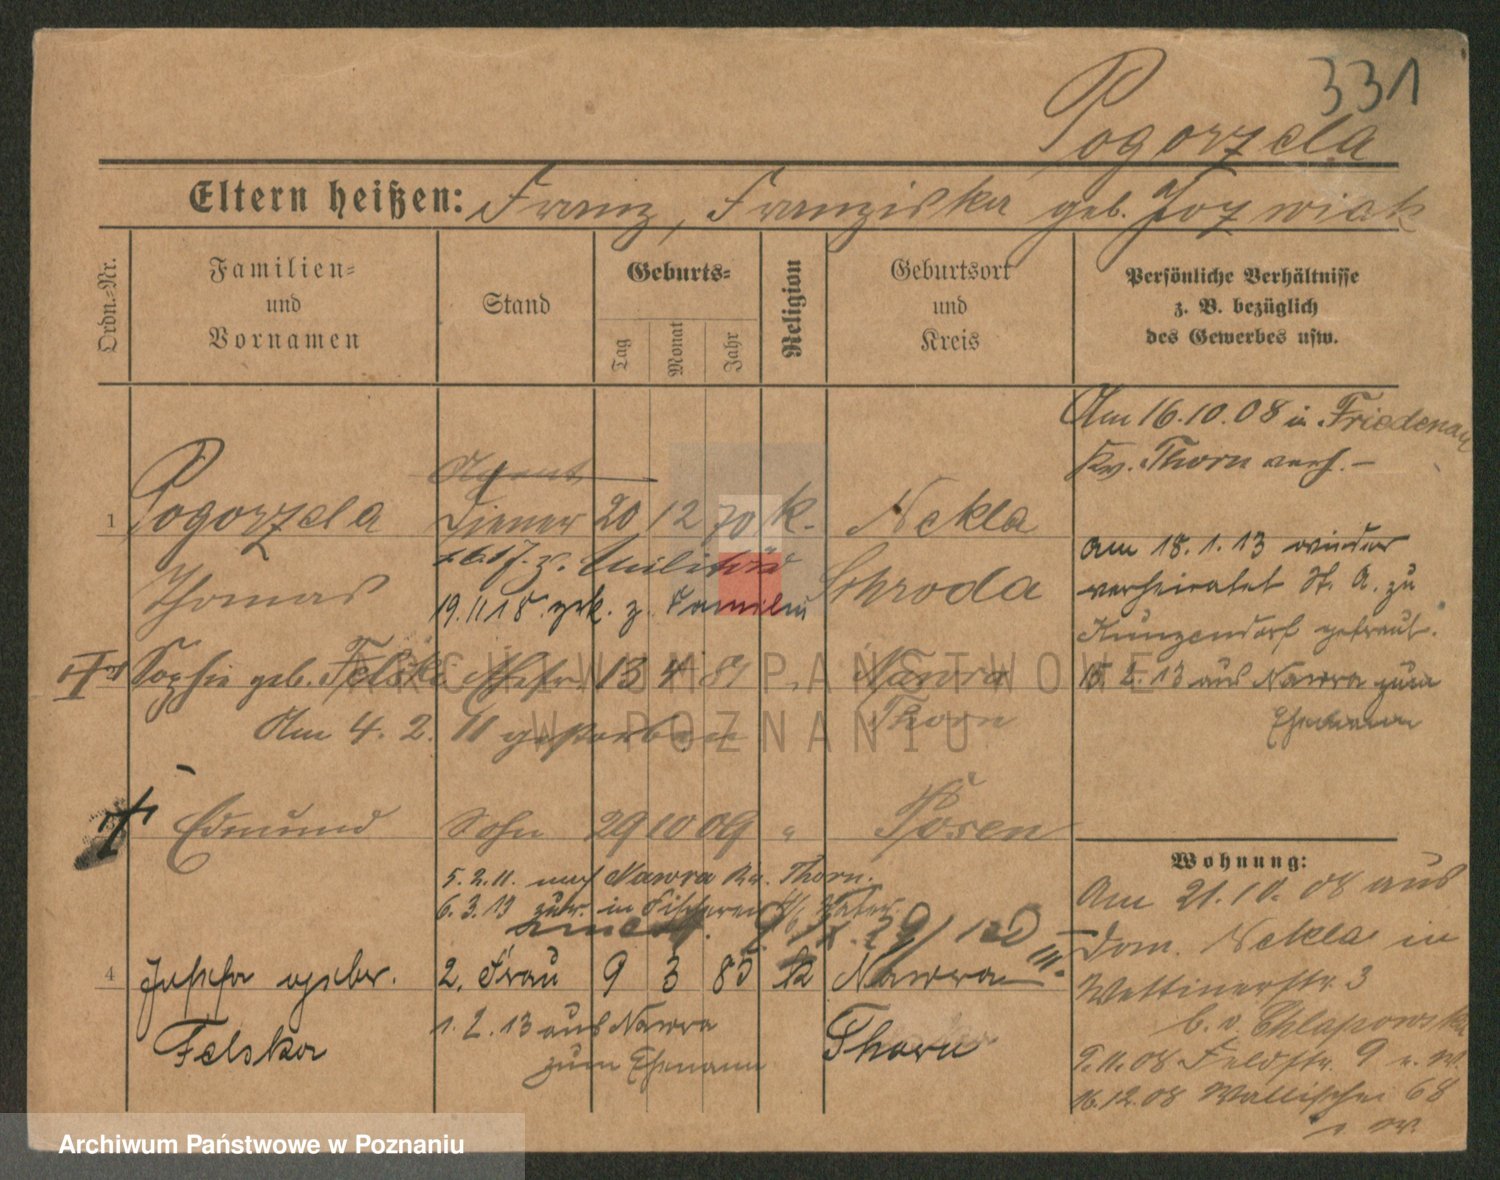 331
Pogorzela
Eltern heißen: Franz, Franziska geb. Jozwiak
Ordn.-Nr.
Familien-
und
Vornamen
Stand
Geburts-
Tag
Monat
Jahr
Religion
Geburtsort
und
Kreis
Persönliche Verhältnisse
z. B. bezüglich
des Gewerbes usw.
Am 16.10.08 in Friedenau
Kr. Thorn verh. –
Agent
1 Pogorzela Diener 20 12 70 k. Nekla
z. Militär
Thomas Schroda
19.11.18 zrk. z. Familie
am 18.1.13 wieder
verheiratet St. A. zu
Kunzendorf getraut.
Sophie geb. Felski Ehefr. 13 4 89 Nawra
Thorn
Am 4.2.11 gestorben
15.2.13 aus Nawra zum
Ehemann
Edmund Sohn 29 10 09 " Posen
5.2.11. nach Nawra Kr. Thorn.
6.3.13 zur. in Vater
4 Josefa geb. 2. Frau 9 3 85 k Nawra
Felska Thorn
1.2.13 aus Nawra
zum Ehemann
Wohnung:
Am 21.10.08 aus
Dom. Nekla in
Wettinerstr. 3
b. v. Chlapowski
9.11.08 Feldstr. 9 v. W.
16.12.08 Wallischei 68
v. W.
ARCHIWUM PAŃSTWOWE
W POZNANIU
Archiwum Państwowe w Poznaniu